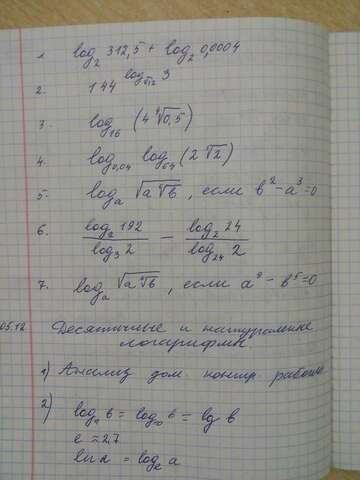 1. log₂ 312,5 + log₂ 0,0004
2. 144^(log√12 3)
3. log₁₆ (4 ⁴√0,5)
4. log₀,₀₄ log₆₄ (2 ∛2)
5. logₐ √(a√b), если b² - a³ = 0
6. log₂ 192 / log₃ 2 - log₂ 24 / log₂₄ 2
7. logₐ √(a√b), если a⁹ - b⁵ = 0
05.12 Десятичные и натуральные
логарифмы
1) Анализ дом. контр. работы
2) logₐ b = log₁₀ b = lg b
e ≈ 2,7
ln a = logₑ a